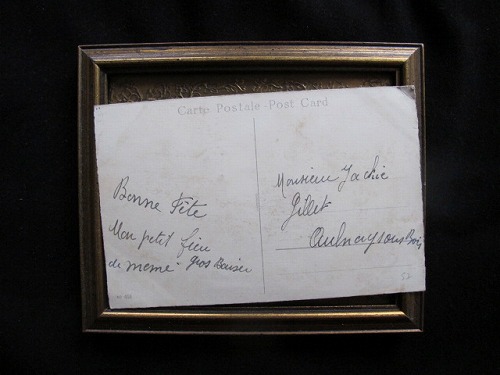 Carte Postale - Post Card
Bonne Fête
Mon petit fieu
de meme - gros Baiser
Monsieur Jackie
Gillet
Aulnay sous Bois
52